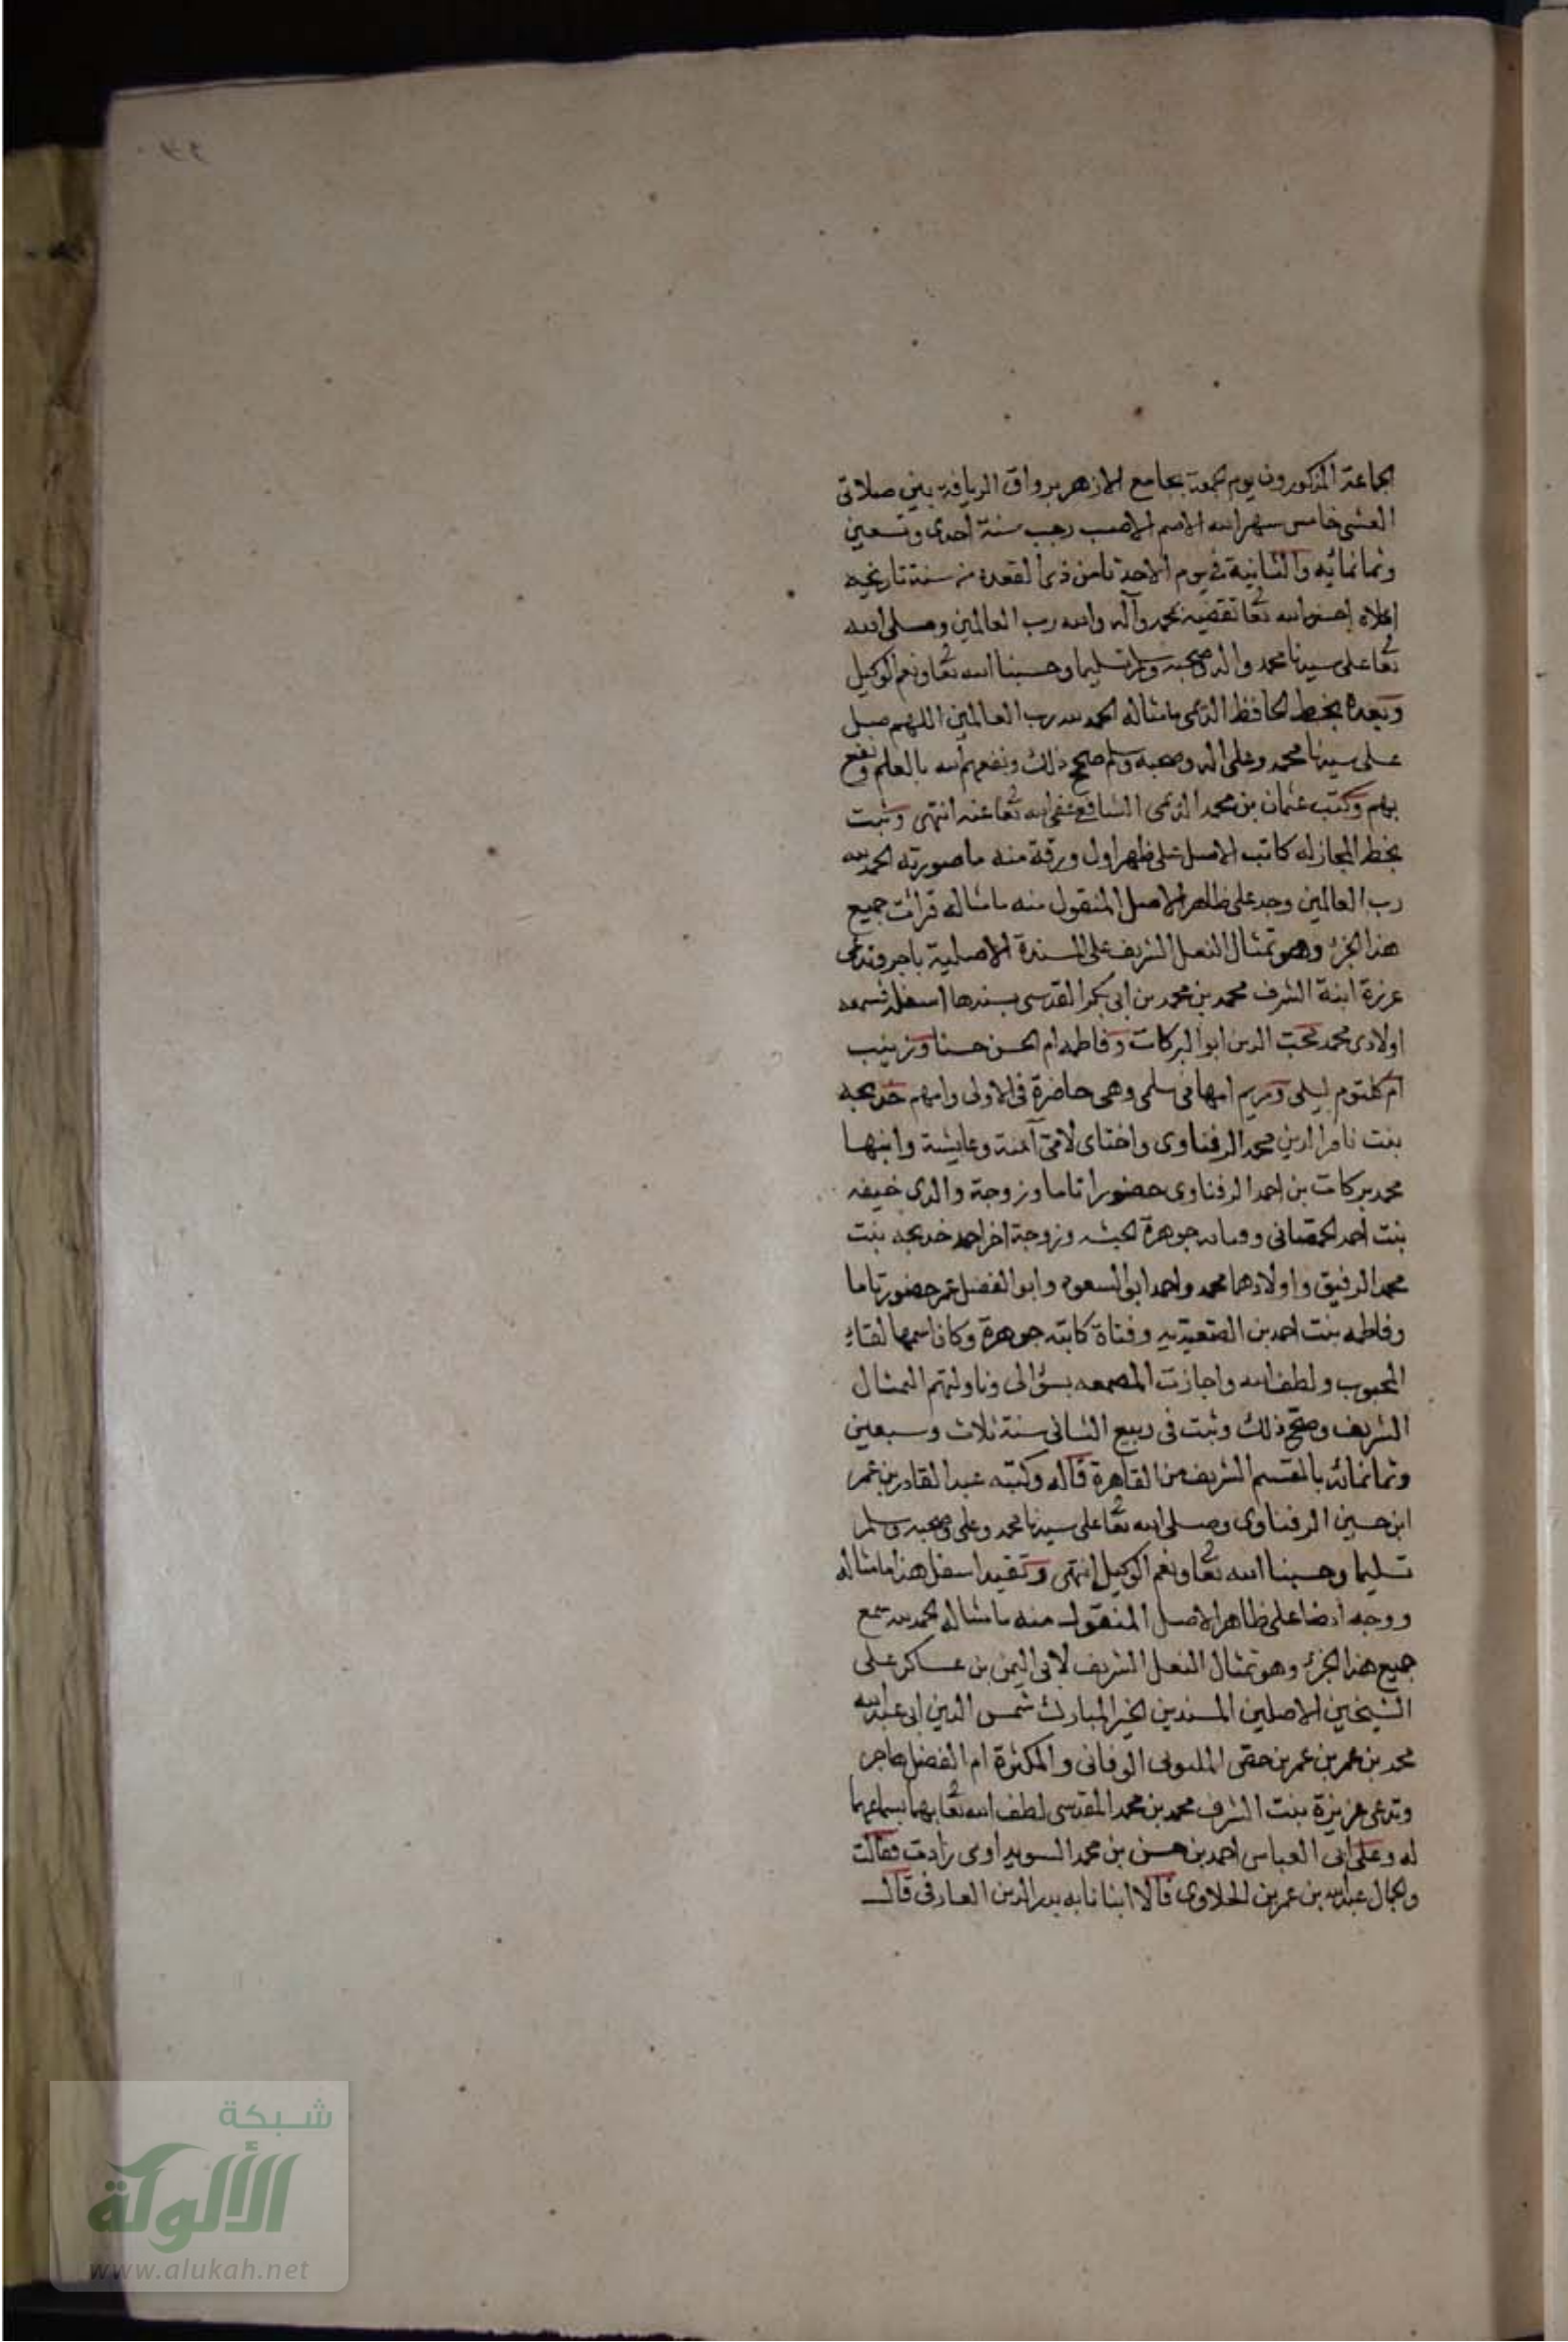 الجماعة المذكورون يوم الجمعة بجامع الازهر برواق الريافة بين صلاتي
العشي خامس شهر الله الاصم الاصب رجب سنة احدى وتسعين
وثمانمائة والثانية في يوم الاحد ثامن ذي القعدة من سنة تاريخه
اعلاه احسن الله تعا تقضيه بمحمد وآله والله رب العالمين وصلى الله
تعا على سيدنا محمد واله وصحبه وسلم تسليما وحسبنا الله تعا ونعم الوكيل
وبعده بخط الحافظ الديمي ما مثاله الحمد لله رب العالمين اللهم صل
على سيدنا محمد وعلى اله وصحبه وسلم صحيح ذلك ونفعهم الله بالعلم ونفع
بهم وكتب عثمان بن محمد الديمي الشافعي عفى الله تعا عنه انتهى وثبت
بخط المجاز له كاتب الاصل على ظهر اول ورقة منه ما صورته الحمد لله
رب العالمين وجد على ظاهر الاصل المنقول منه ما مثاله قرأت جميع
هذا الجزء وهو تمثال النعل الشريف على المسندة الاصلية هاجر وتدعى
عزيزة ابنة الشرف محمد بن محمد بن ابي بكر القدسي بسندها اسفله فسمعه
اولادي محمد محب الدين ابو البركات وفاطمه ام الحسن حسنا وزينب
ام كلثوم ليلى ومريم امهاني سلمى وهي حاضرة في الاولى وامهم خديجه
بنت ناصر الدين محمد الدفناوي واختاي لامي آمنة وعايشة وابنها
محمد بركات بن احمد الرفناوي حضورا تاما وزوجة والدي
بنت احمد الحمصاني جوهرة الحبشه وزوجة اخر احمد خديجه بنت
محمد الرفيق واولادهما محمد واحمد ابو السعود وابو الفضل عمر حضور تاما
وفاطمه بنت احمد بن وفتاة كاتبه جوهرة وكان اسمها لقاء
المحبوب ولطف الله واجازت المسمعه بسؤالى وناولتهم التمثال
الشريف وصح ذلك وثبت في ربيع الثاني سنة ثلاث وسبعين
وثمانمائه بالمقسم الشريف من القاهرة قاله وكتبه عبد القادر بن عمر
ابن حسين الرفناوي وصلى الله تعا على سيدنا محمد وعلى وصحبه وسلم
تسليما وحسبنا الله تعا ونعم الوكيل انتهى وتقيد اسفل هذا ما مثاله
ووجد ايضا على ظاهر الاصل المنقول منه ما مثاله الحمد لله سمع
جميع هذا الجزء وهو تمثال النعل الشريف لابي اليمن بن عساكر على
الشيخين الاصلين المسندين الخير المبارك شمس الدين ابي عبد الله
محمد بن عمر بن عمر بن حصى الوفائي والمكثرة ام الفضل هاجر
وتدعى عزيزة بنت الشرف محمد بن محمد المقدسي لطف الله تعا بهما بسماعهما
له وعلى ابي العباس احمد بن حسن بن محمد السويداوي زادت فقالت
والجمال عبد الله بن عمر بن الحلاوي قالا انبانا به بدر الدين الفارقي قال
شبكة
الألوكة
www.alukah.net